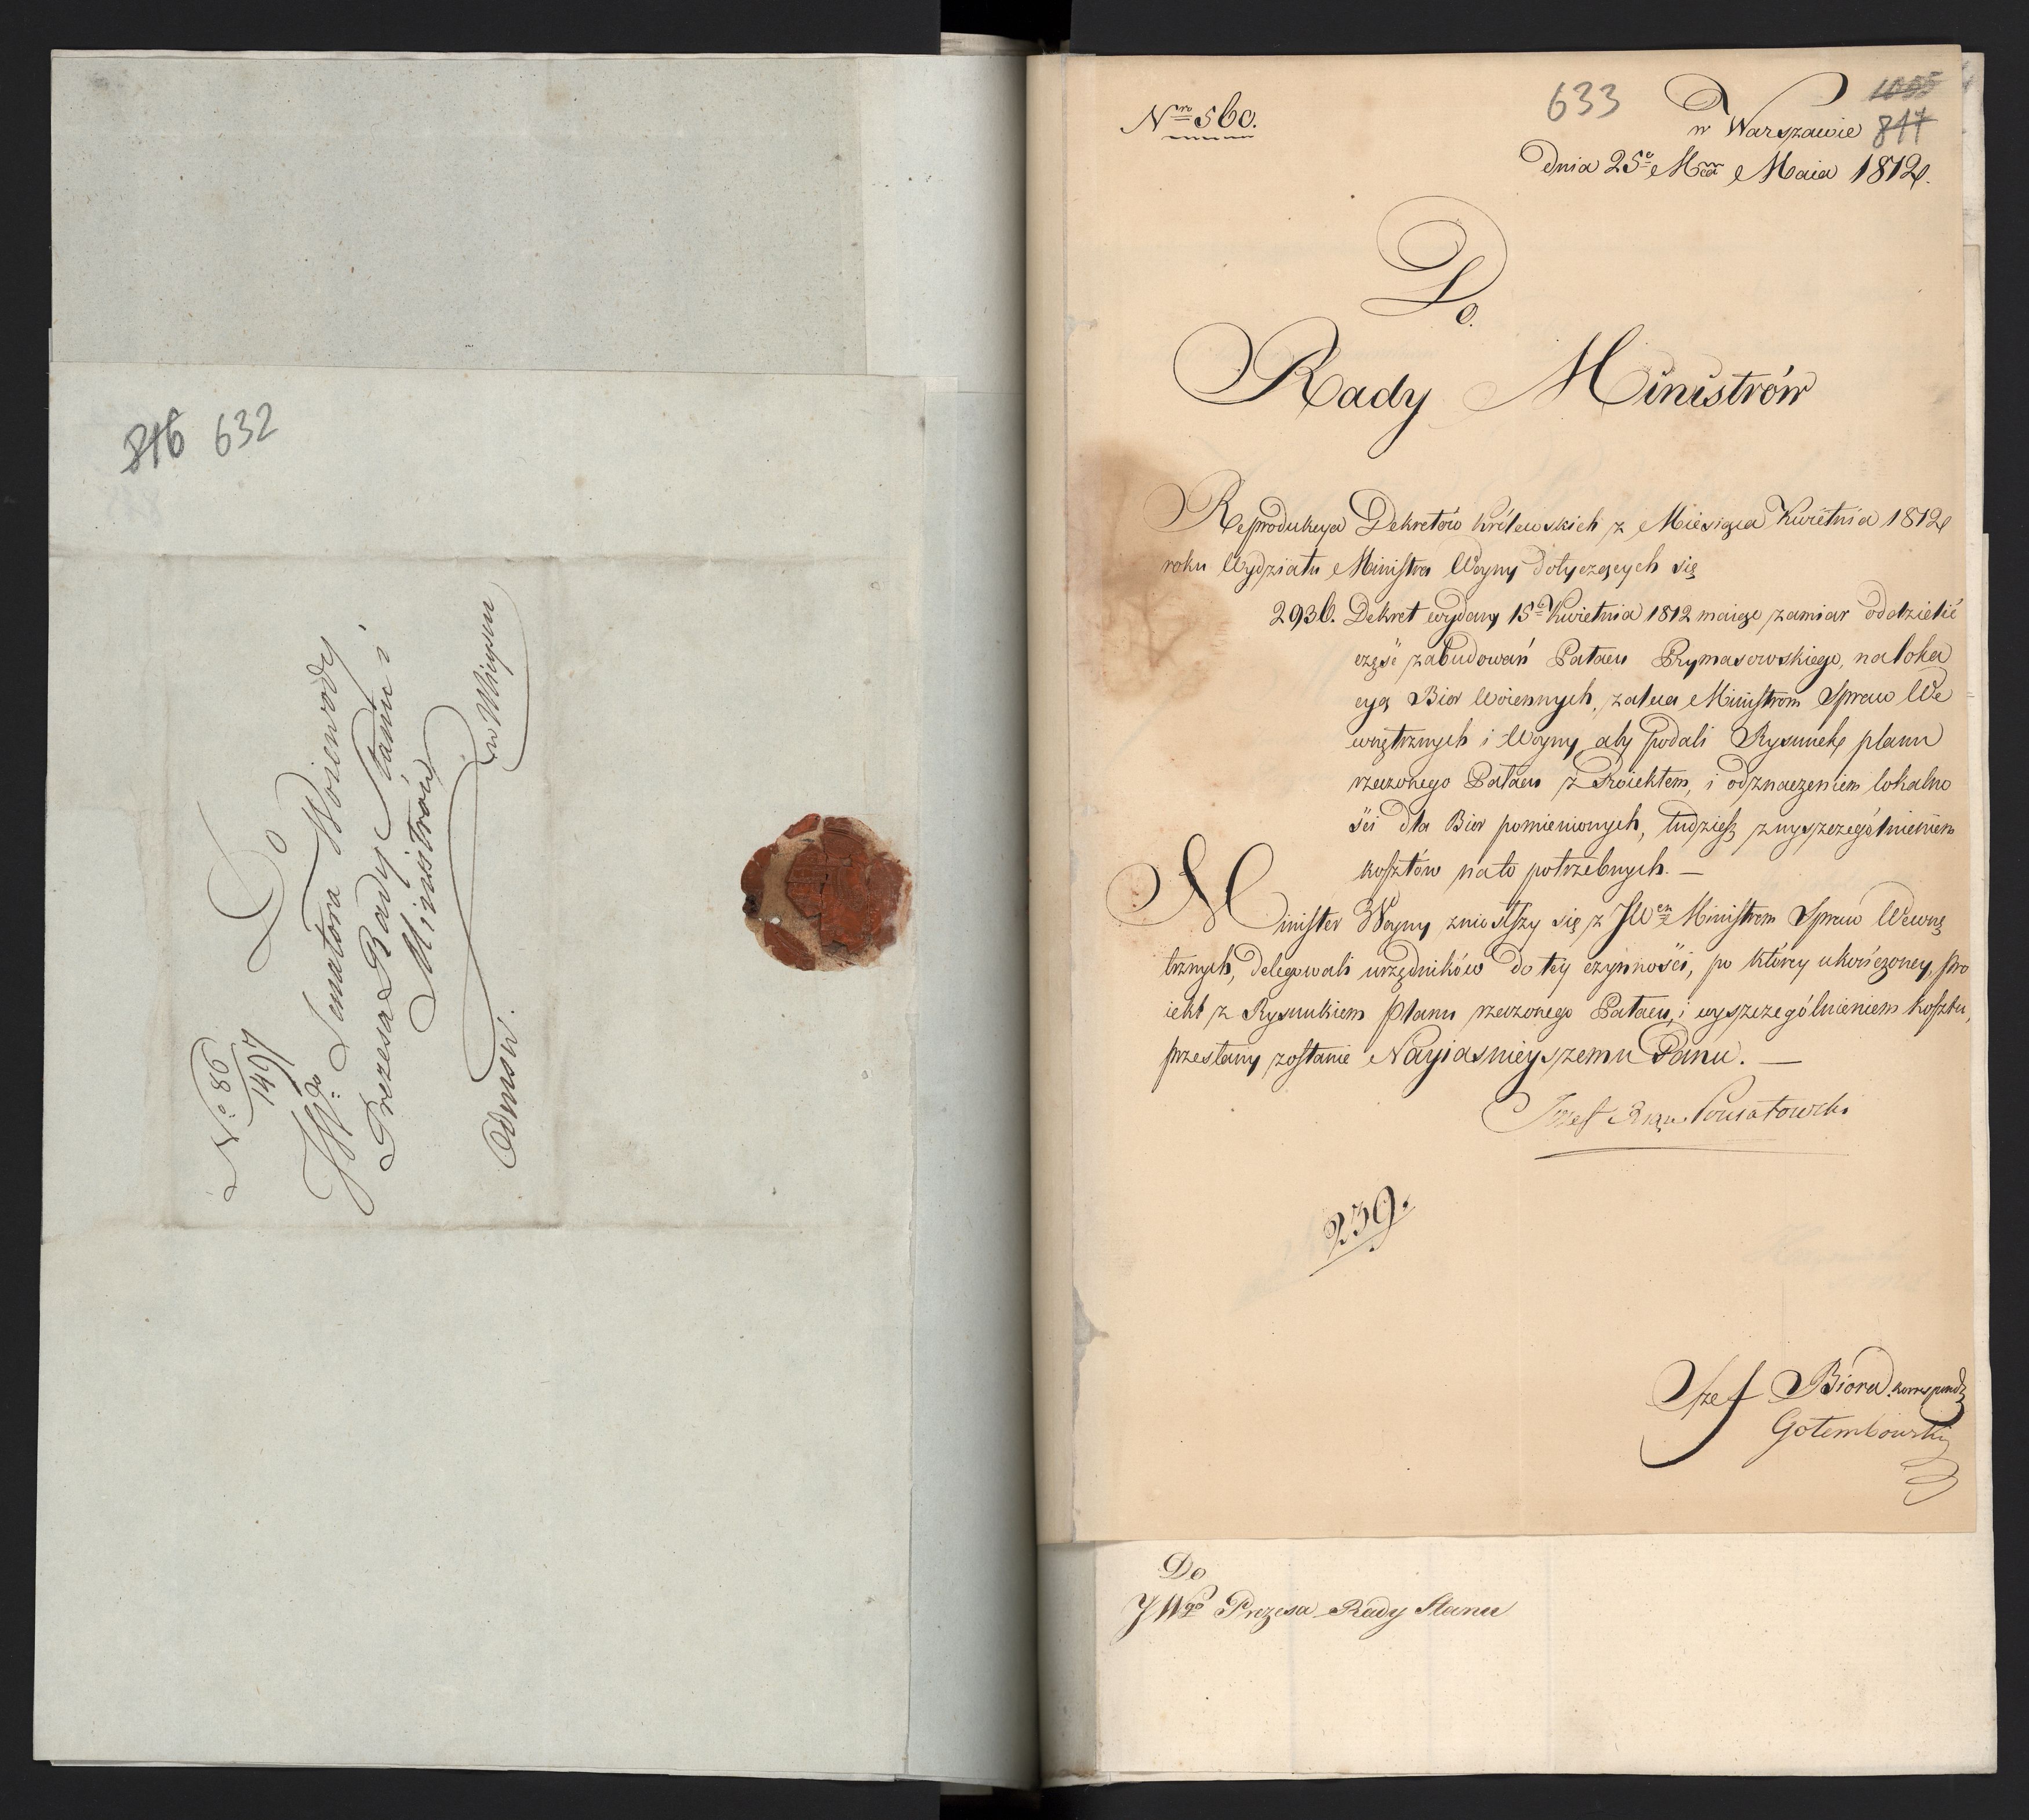 816 632
Do
N.o 86
1497
JW.do Senatora Woiewody
Prezesa Rady Stanu i
Ministrów
w Mieyscu
Odnosi.
Nro 560.
633
1055
817
w Warszawie
Dnia 25o Mca Maia 1812.
Do.
Rady Ministrów
Reprodukcya Dekretów Królewskich z Miesiąca Kwietnia 1812
roku Wydziału Ministra Woyny dotyczących się
2936. Dekret wydany 15o Kwietnia 1812 maiąc zamiar oddzielić
część zabudowań Pałacu Prymasowskiego, na loka
cyą Biór Woiennych, zaleca Ministrom Spraw We
wnętrznych i Woyny aby podali Rysunek planu
rzeczonego Pałacu z Proiektem, i odznaczeniem lokalno
ści dla Biór pomienionych, tudzież z wyszczególnieniem
kosztów na to potrzebnych. —
Minister Woyny zniósłszy się z JWem Ministrem Spraw Wewnę
trznych, delegowali urzędników do tey czynności, po którey ukończoney, pro
iekt z Rysunkiem Planu rzeczonego Pałacu, i wyszczególnieniem kosztu,
przesłany zostanie Nayiaśnieyszemu Panu. —
Józef Xżę Poniatowski
239.
Szef Biora korrespond:
Gołembiowski
Do
JWgo Prezesa Rady Stanu